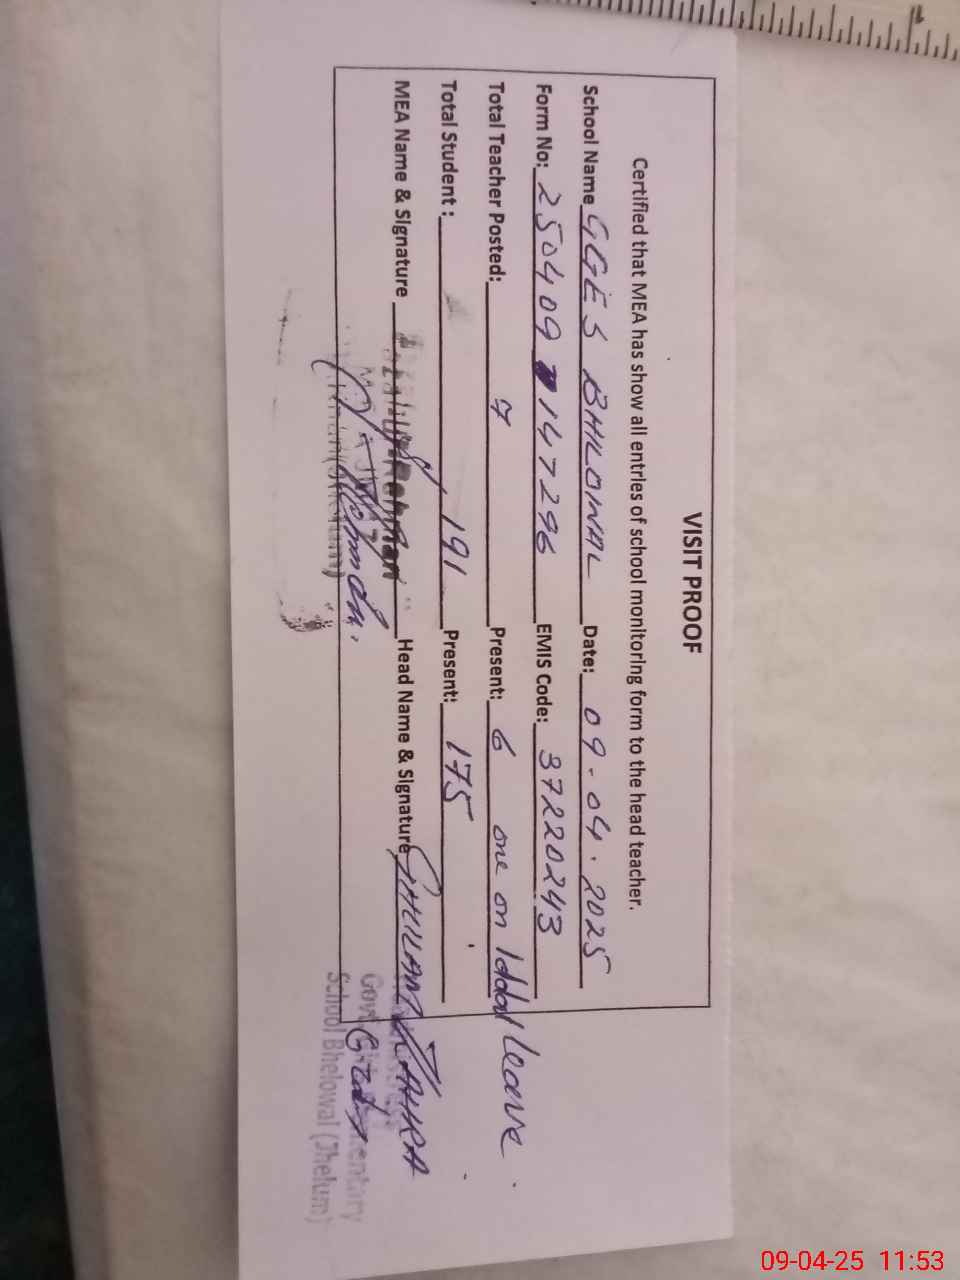 VISIT PROOF
Certified that MEA has show all entries of school monitoring form to the head teacher.
School Name GGES BHILOWAL Date: 09-04.2025
Form No: 250409 147296 EMIS Code: 37220243
Total Teacher Posted: 7 Present: 6 one on Iddat leave.
Total Student : 191 Present: 175
MEA Name & Signature Rehman Head Name & Signature GHULAM ZAHRA
Govt
School Bhelowal (Jhelum)
09-04-25 11:53